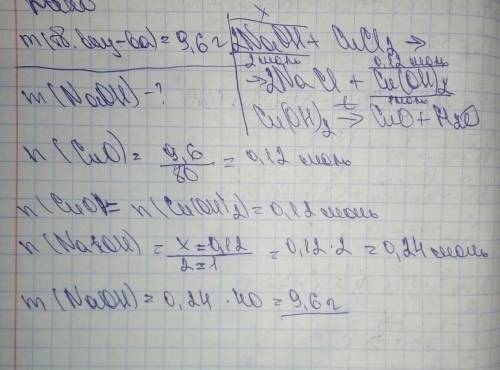 x
m(тв. вещ-ва) = 9,6 г
2NaOH + CuCl2 →
2 моль
0,12 моль
→ 2NaCl + Cu(OH)2
1 моль
m(NaOH) - ?
Cu(OH)2 t→ CuO + H2O
n(CuO) = 9,6/80 = 0,12 моль
n(CuO) = n(Cu(OH)2) = 0,12 моль
n(NaOH) = x = 0,12 / 2 = 1 = 0,12 · 2 = 0,24 моль
m(NaOH) = 0,24 · 40 = 9,6 г